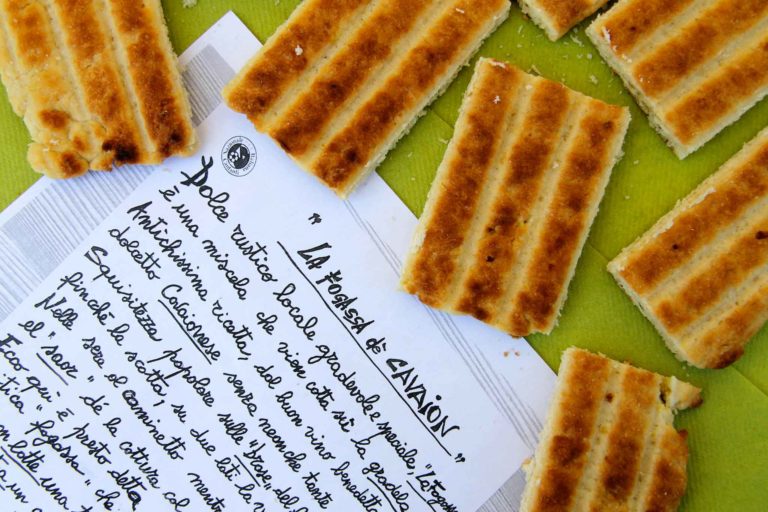 " LA FOGASSA de CAVAION "
Dolce rustico locale gradevole e speciale, "La fogass
è una miscela che vien cota sü la gradela
Antichissima ricetta, dal buon vino benedetta
dolcetto Cavaionese senza neonche tante
Squisitezza popolare sulle "brase" del
finché la scotta, su due lati la v
Nelle sere el caminetto mentr
el "saor" dé la citura col
Ecco qui è presto detta
tica "fogassa" che
on latte una